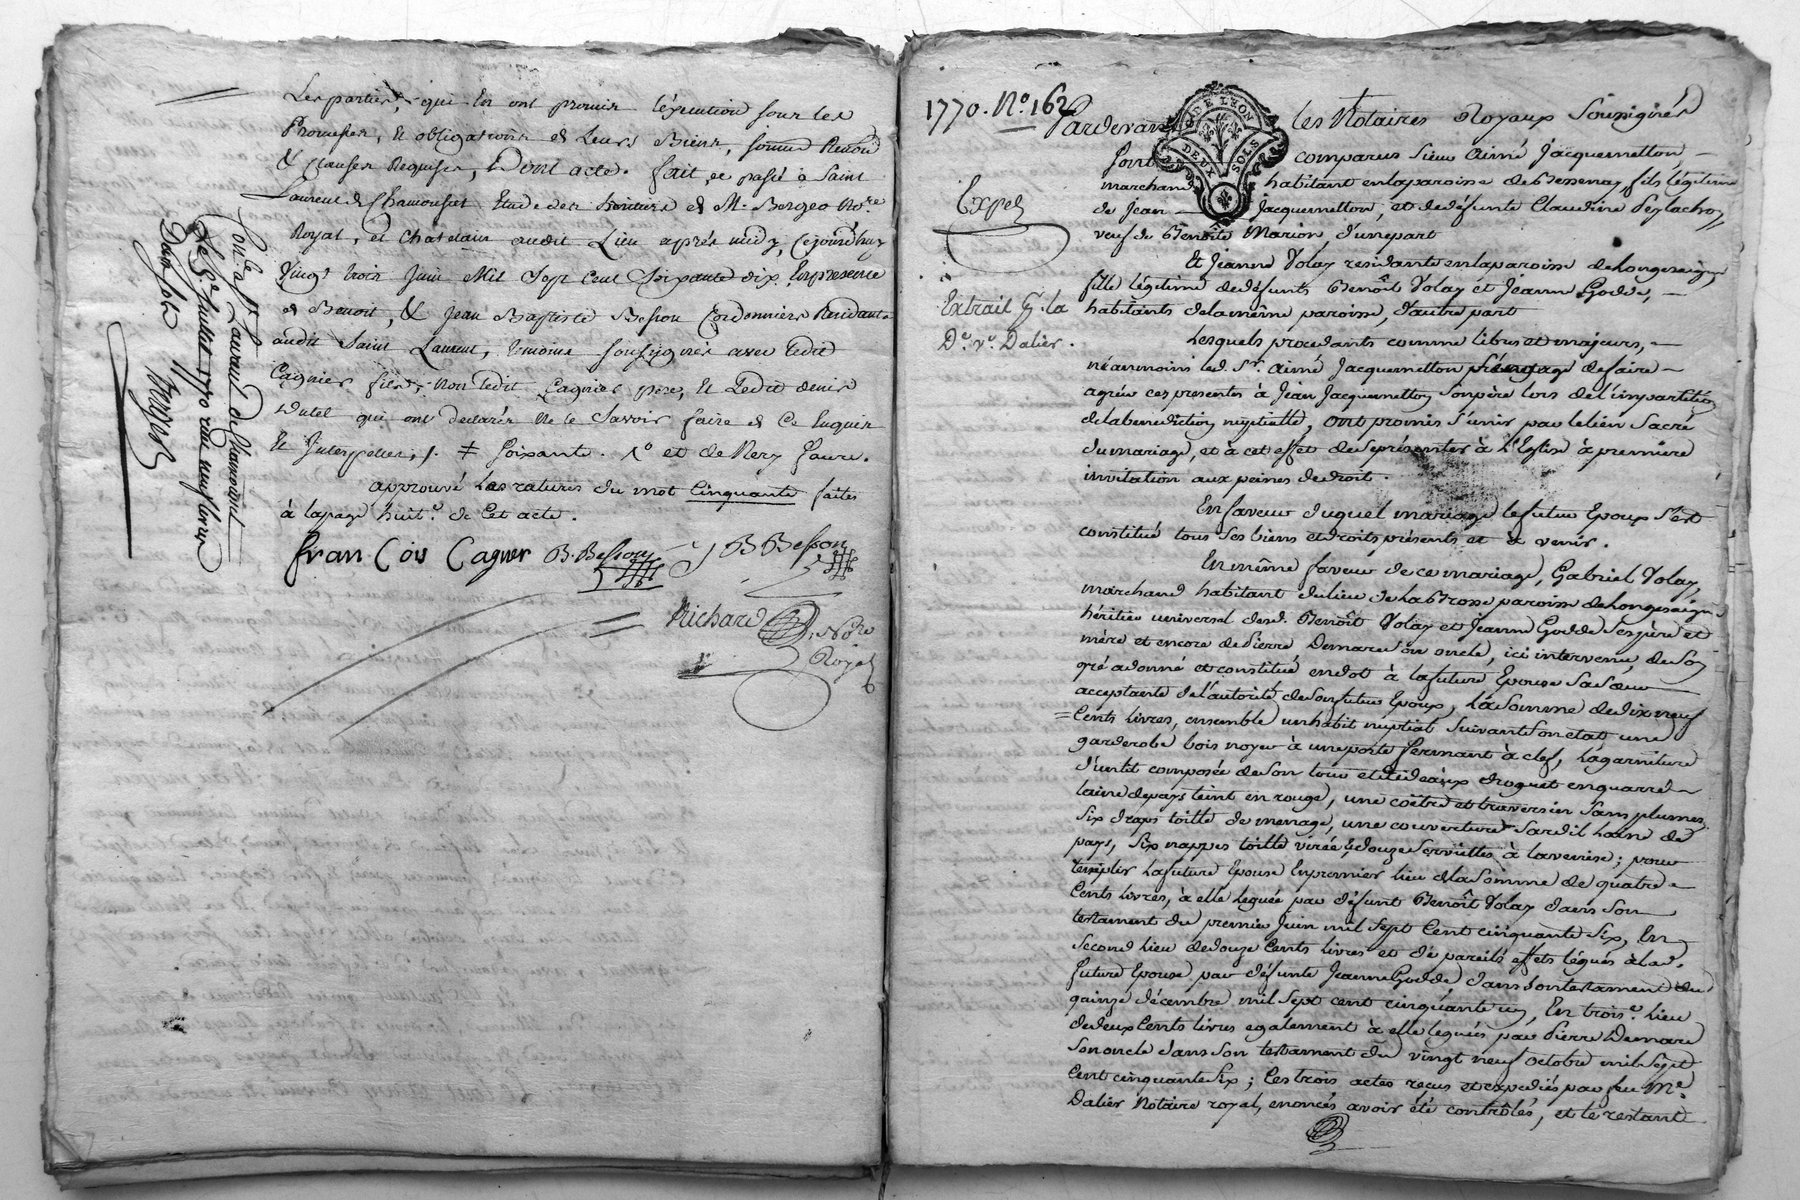 Les parties, qui en ont promis l'éxecution sous les
Promesses, & obligations de Leurs Biens, soumis Renon
& clauses Requises, Dont acte. fait, et passé a Saint
Laurent de Chamousset Etude des heritiers de Me. Bergeo No.re
Royal, et Chatelain audit Lieu aprés midy, Cejourdhuy
Vingt trois Juin Mil Sept Cent Soixante dix. En presence
de Benoit, & Jean Baptiste Besson Cordonniers Residants
audit Saint Laurent, temoins soussignés avec ledit
Cagnier fils, non ledit Cagnier pere, et Ledit denis
Dutel qui ont declarés Ne le Savoir faire de Ce Enquis
et Interpellés, ./. ≠ soixante. 1º et de Nery Faure.
approuvé Les ratures du mot cinquante faites
à la page huit.e de cet acte.
fran Cois Cagnier B. Besson J B Besson
Richard, No.re
Royal
Con.lé a St Laurent de Chamousset
Le 5e. Juillet 1770 reçu neuf livres
Dix sols
1770. No. 162
DEUX SOLS
Pardevant les Notaires Royaux Soussignés
sont comparus Sieur Aimé Jacquemetton,
marchand habitant en la paroisse de Bessenay fils légitime
de Jean Jacquemetton, et de défunte Claudine
veuf de Benoîte Marion d'une part
Expé
Et Jeanne Volay residante en la paroisse de Longessaigne
fille légitime de défunts Benoît Volay et Jeanne Godde,
habitants de la même paroisse, d'autre part
Extrait la
De. ve. Dalier.
Lesquels procedants comme libres et majeurs,
néanmoins led. Sr. Aimé Jacquemetton s'éngage de faire
agréer ces presentes à Jean Jacquemetton son père lors de l'impartition
de la benediction nuptialle, ont promis s'unir par le lien Sacré
du mariage, et à cet effet de se présenter à l'Eglise à première
invitation aux peines de droit.
En faveur duquel mariage le futur Epoux s'est
constitué tous ses biens et droits présents et à venir.
En même faveur de ce mariage, Gabriel Volay,
marchand habitant du lieu de la Brosse paroisse de Longessaigne
héritier universel desd. Benoît Volay et Jeanne Godde ses père et
mère et encore de Pierre Demare son oncle, ici intervenu, de son
gré a donné et constitué en dot à la future Epouse sa sœur
acceptante de l'autorité de son futur Epoux, la somme de dix neuf
Cents livres, ensemble un habit nuptial suivant son état une
garderobe bois noyer à une porte fermant à clef, la garniture
d'un lit composée de son tour et rideaux droguet en quarré
laine de pays teint en rouge, une coëtre et traversin sans plumes,
six draps toille de menage, une couverture sardil laine de
pays, six nappes toille virée & douze serviettes à la venise; pour
remplir la future Epouse En premier lieu de la somme de quatre
Cents livres, à elle leguée par défunt Benoît Volay dans son
testament du premier Juin mil sept cent cinquante six, En
second lieu de douze cents livres et de pareils effets légués à lad.
future Epouse par défunte Jeanne Godde dans son testament du
quinze décembre mil sept cent cinquante un, En trois.e lieu
de deux cents livres egalement à elle legués par Pierre Demare
son oncle dans son testament du vingt neuf octobre mil sept
cent cinquante six; Ces trois actes reçus et expediés par feu Me.
Dalier Notaire royal, enoncés avoir été contrôlés, et le restant